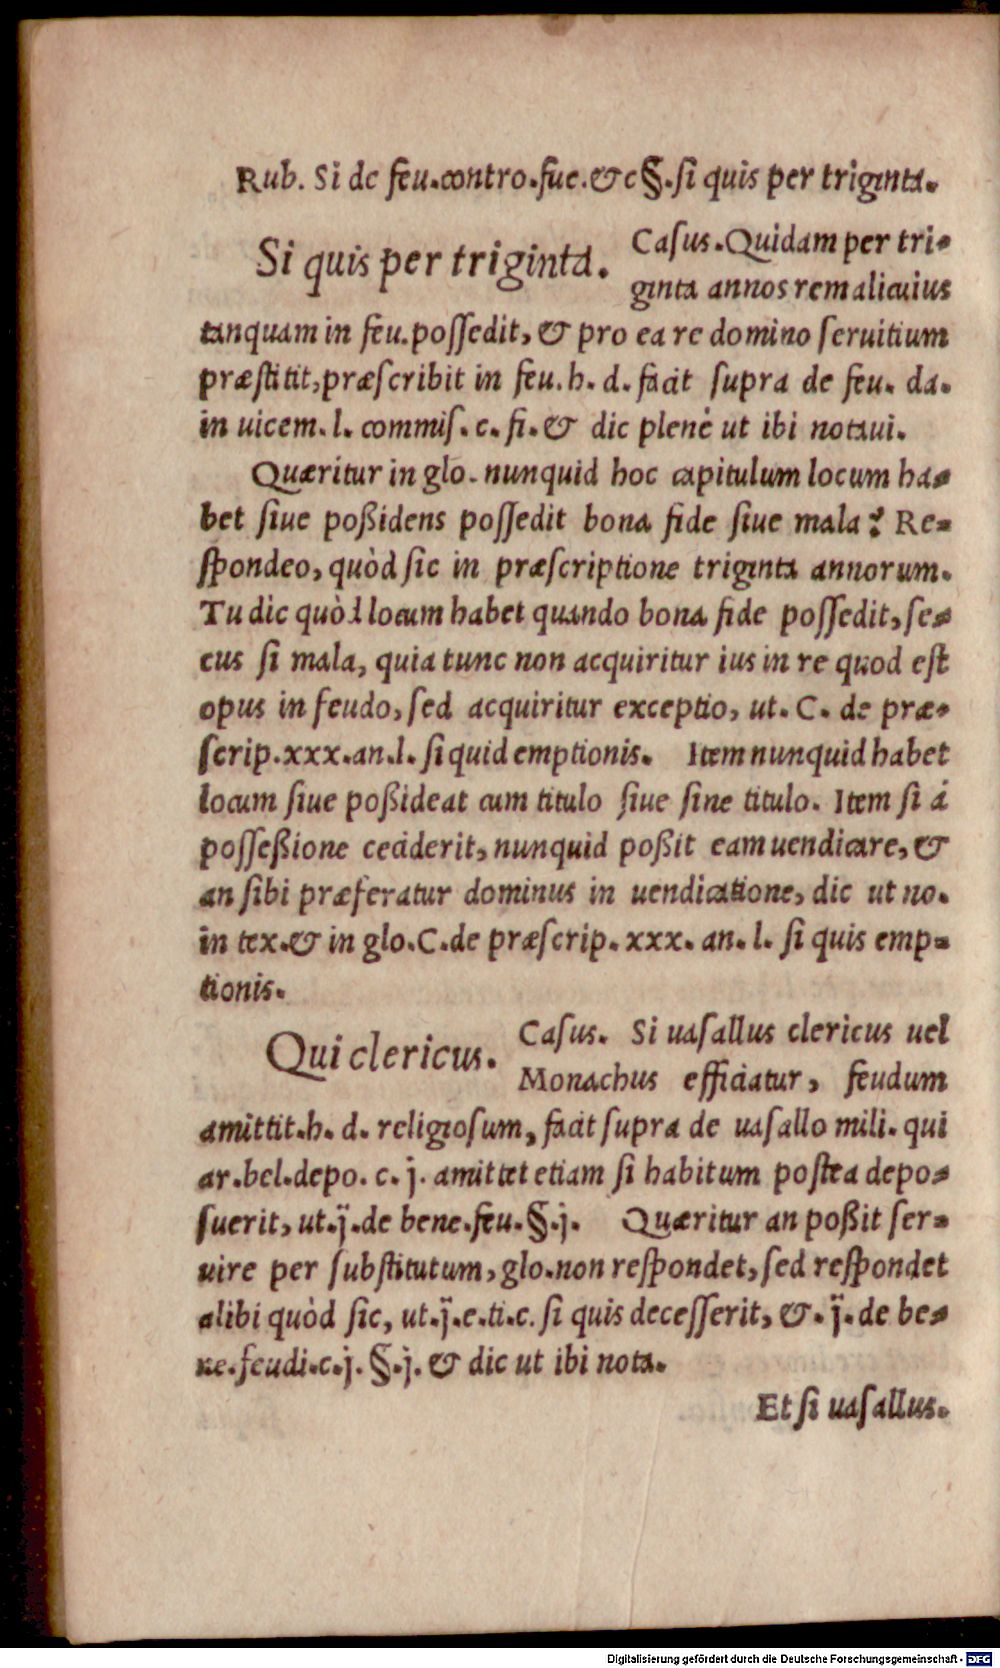 Rub. Si de feu.contro.fue.& c§.ſi quis per triginta.
Si quis per triginta. Caſus.Quidam per tri=
ginta annos rem alicuius
tanquam in feu.poſſedit, & pro ea re domino ſeruitium
præſtitit,præſcribit in feu.h.d.facit ſupra de feu. da.
in uicem.l. commiſ.c.fi.& dic plenè ut ibi notaui.
Quæritur in glo. nunquid hoc capitulum locum ha=
bet ſiue poßidens poſſedit bona fide ſiue mala? Re=
ſpondeo, quòd ſic in præſcriptione triginta annorum.
Tu dic quòd locum habet quando bona fide poſſedit, ſe=
cus ſi mala, quia tunc non acquiritur ius in re quod eſt
opus in feudo, ſed acquiritur exceptio, ut. C. de præ=
ſcrip.xxx.an.l. ſi quid emptionis. Item nunquid habet
locum ſiue poßideat cum titulo ſiue ſine titulo. Item ſi á
poſſeßione ceciderit, nunquid poßit eam uendicare, &
an ſibi præferatur dominus in uendicatione, dic ut no.
in tex.& in glo.C.de præſcrip.xxx. an.l. ſi quis emp=
tionis.
Qui clericus. Caſus. Si uaſallus clericus uel
Monachus efficiatur, feudum
amittit.h. d. religioſum, facit ſupra de uaſallo mili. qui
ar.bel.depo. c.j. amittet etiam ſi habitum poſtea depo=
ſuerit, ut.j̈.de bene.feu.§.j. Quæritur an poßit ſer=
uire per ſubſtitutum, glo.non reſpondet, ſed reſpondet
alibi quòd ſic, ut.j̈.e.ti.c. ſi quis deceſſerit, &.j̈.de be=
ne.feudi.c.j. §.j. & dic ut ibi nota.
Et ſi uaſallus.
Digitalisierung gefördert durch die Deutsche Forschungsgemeinschaft - DFG